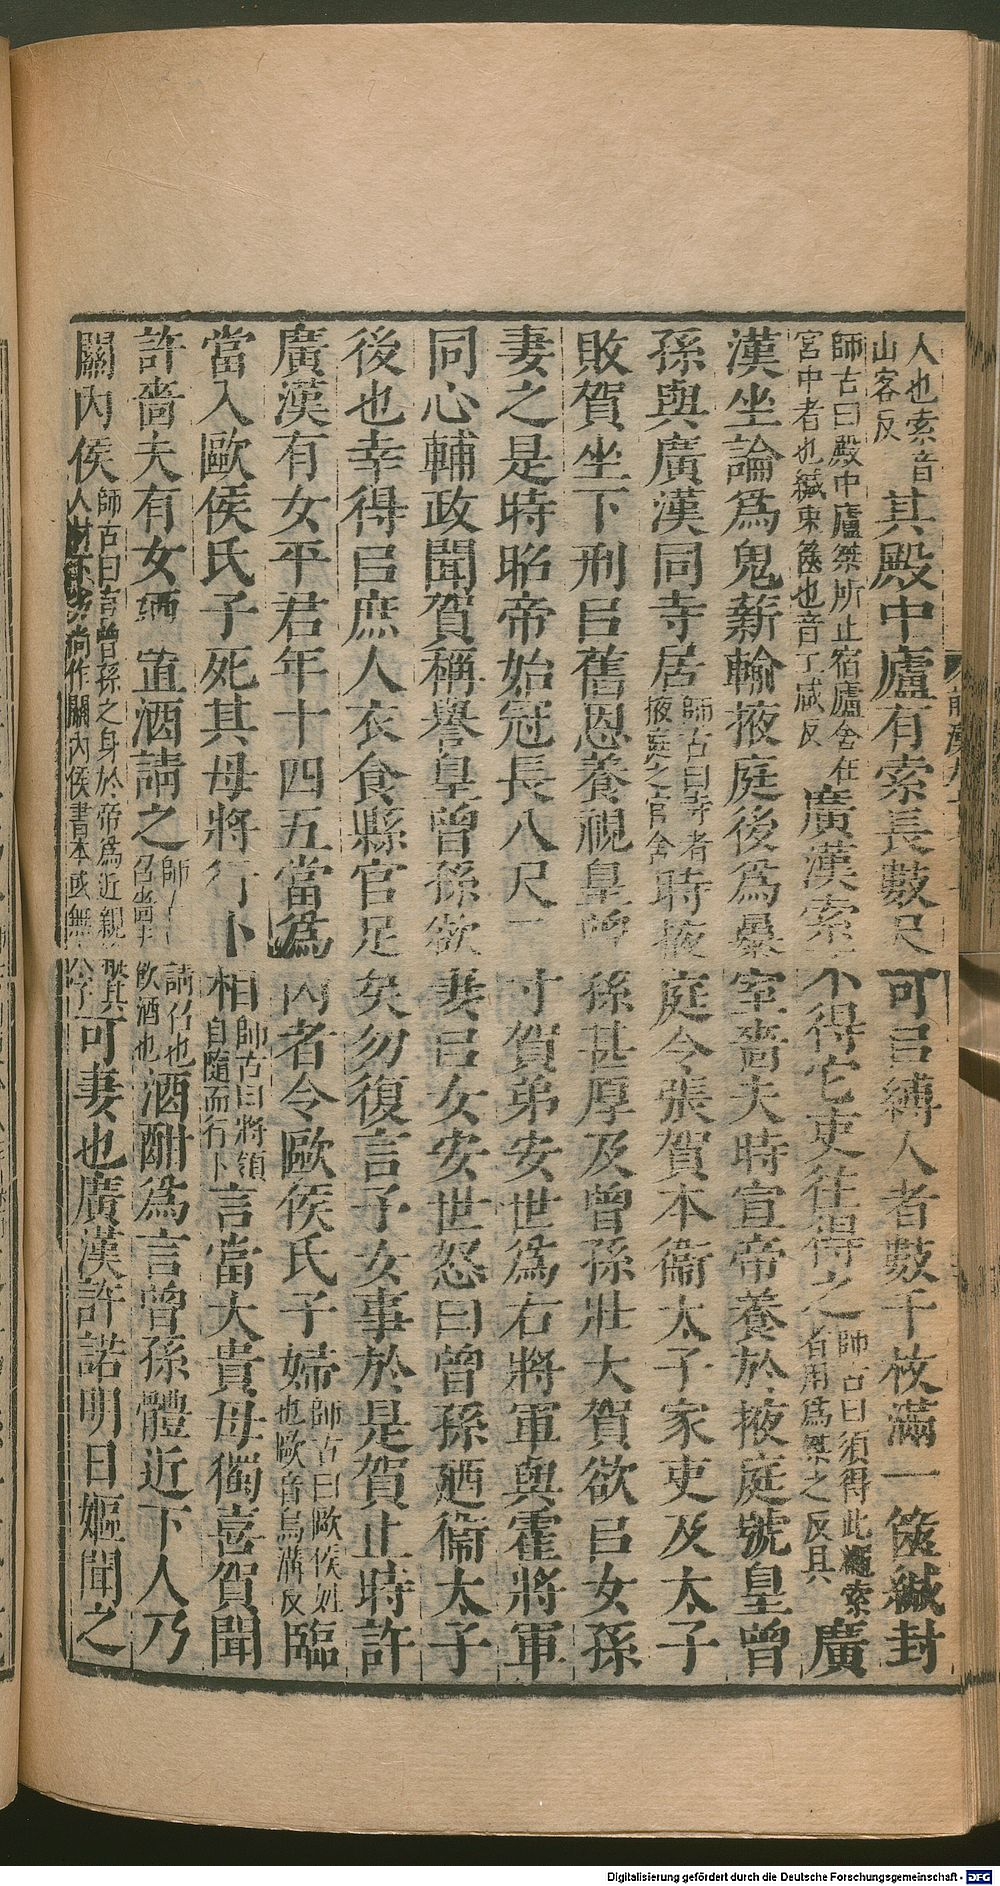 人也索音山客反其殿中廬有索長數尺可㠯縛人者數千枚滿一篋緘封
師古曰殿中廬桀所止宿廬舍在宮中者也緘束篋也音工咸反廣漢索不得它吏往得之師古曰須得此繩索者用爲桀之反具廣
漢坐論爲鬼薪輸掖庭後爲暴室嗇夫時宣帝養於掖庭號皇曾
孫與廣漢同寺居師古曰寺者掖庭之官舍時掖庭令張賀本衞太子家吏及太子
敗賀坐下刑㠯舊恩養視皇曾孫甚厚及曾孫壯大賀欲㠯女孫
妻之是時昭帝始冠長八尺二寸賀弟安世爲右將軍與霍將軍
同心輔政聞賀稱譽皇曾孫欲妻㠯女安世怒曰曾孫廼衞太子
後也幸得㠯庶人衣食縣官足矣勿復言予女事於是賀止時許
廣漢有女平君年十四五當爲內者令歐侯氏子婦師古曰歐侯姓也歐音烏溝反臨
當入歐侯氏子死其母將行卜相師古曰將領自隨而行卜言當大貴母獨喜賀聞
許嗇夫有女廼置酒請之請召也飮酒也酒酣爲言曾孫體近下人乃
關內侯師古曰言曾孫之身於帝爲近親人尚作關內侯書本或無可妻也廣漢許諾明日嫗聞之
Digitalisierung gefördert durch die Deutsche Forschungsgemeinschaft - DFG